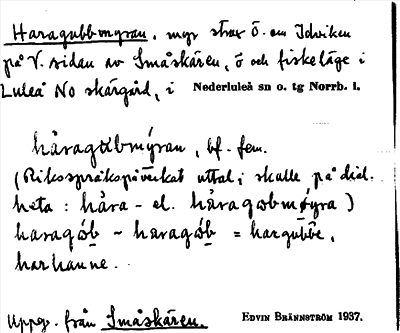 Haragubbmyran, myr strax ö. om Idviken
på V. sidan av Småskären, ö och fiskeläge i
Luleå No skärgård, i Nederluleå sn o. tg Norrb. l.
håragubmýran, bf. fem.
(Riksspråkspåverkat uttal; skulle på dial.
heta: håra- el. håragobmøyra)
haragob ~ haragob = hargubbe,
harhanne.
Uppg. från Småskären. EDVIN BRÄNNSTRÖM 1937.